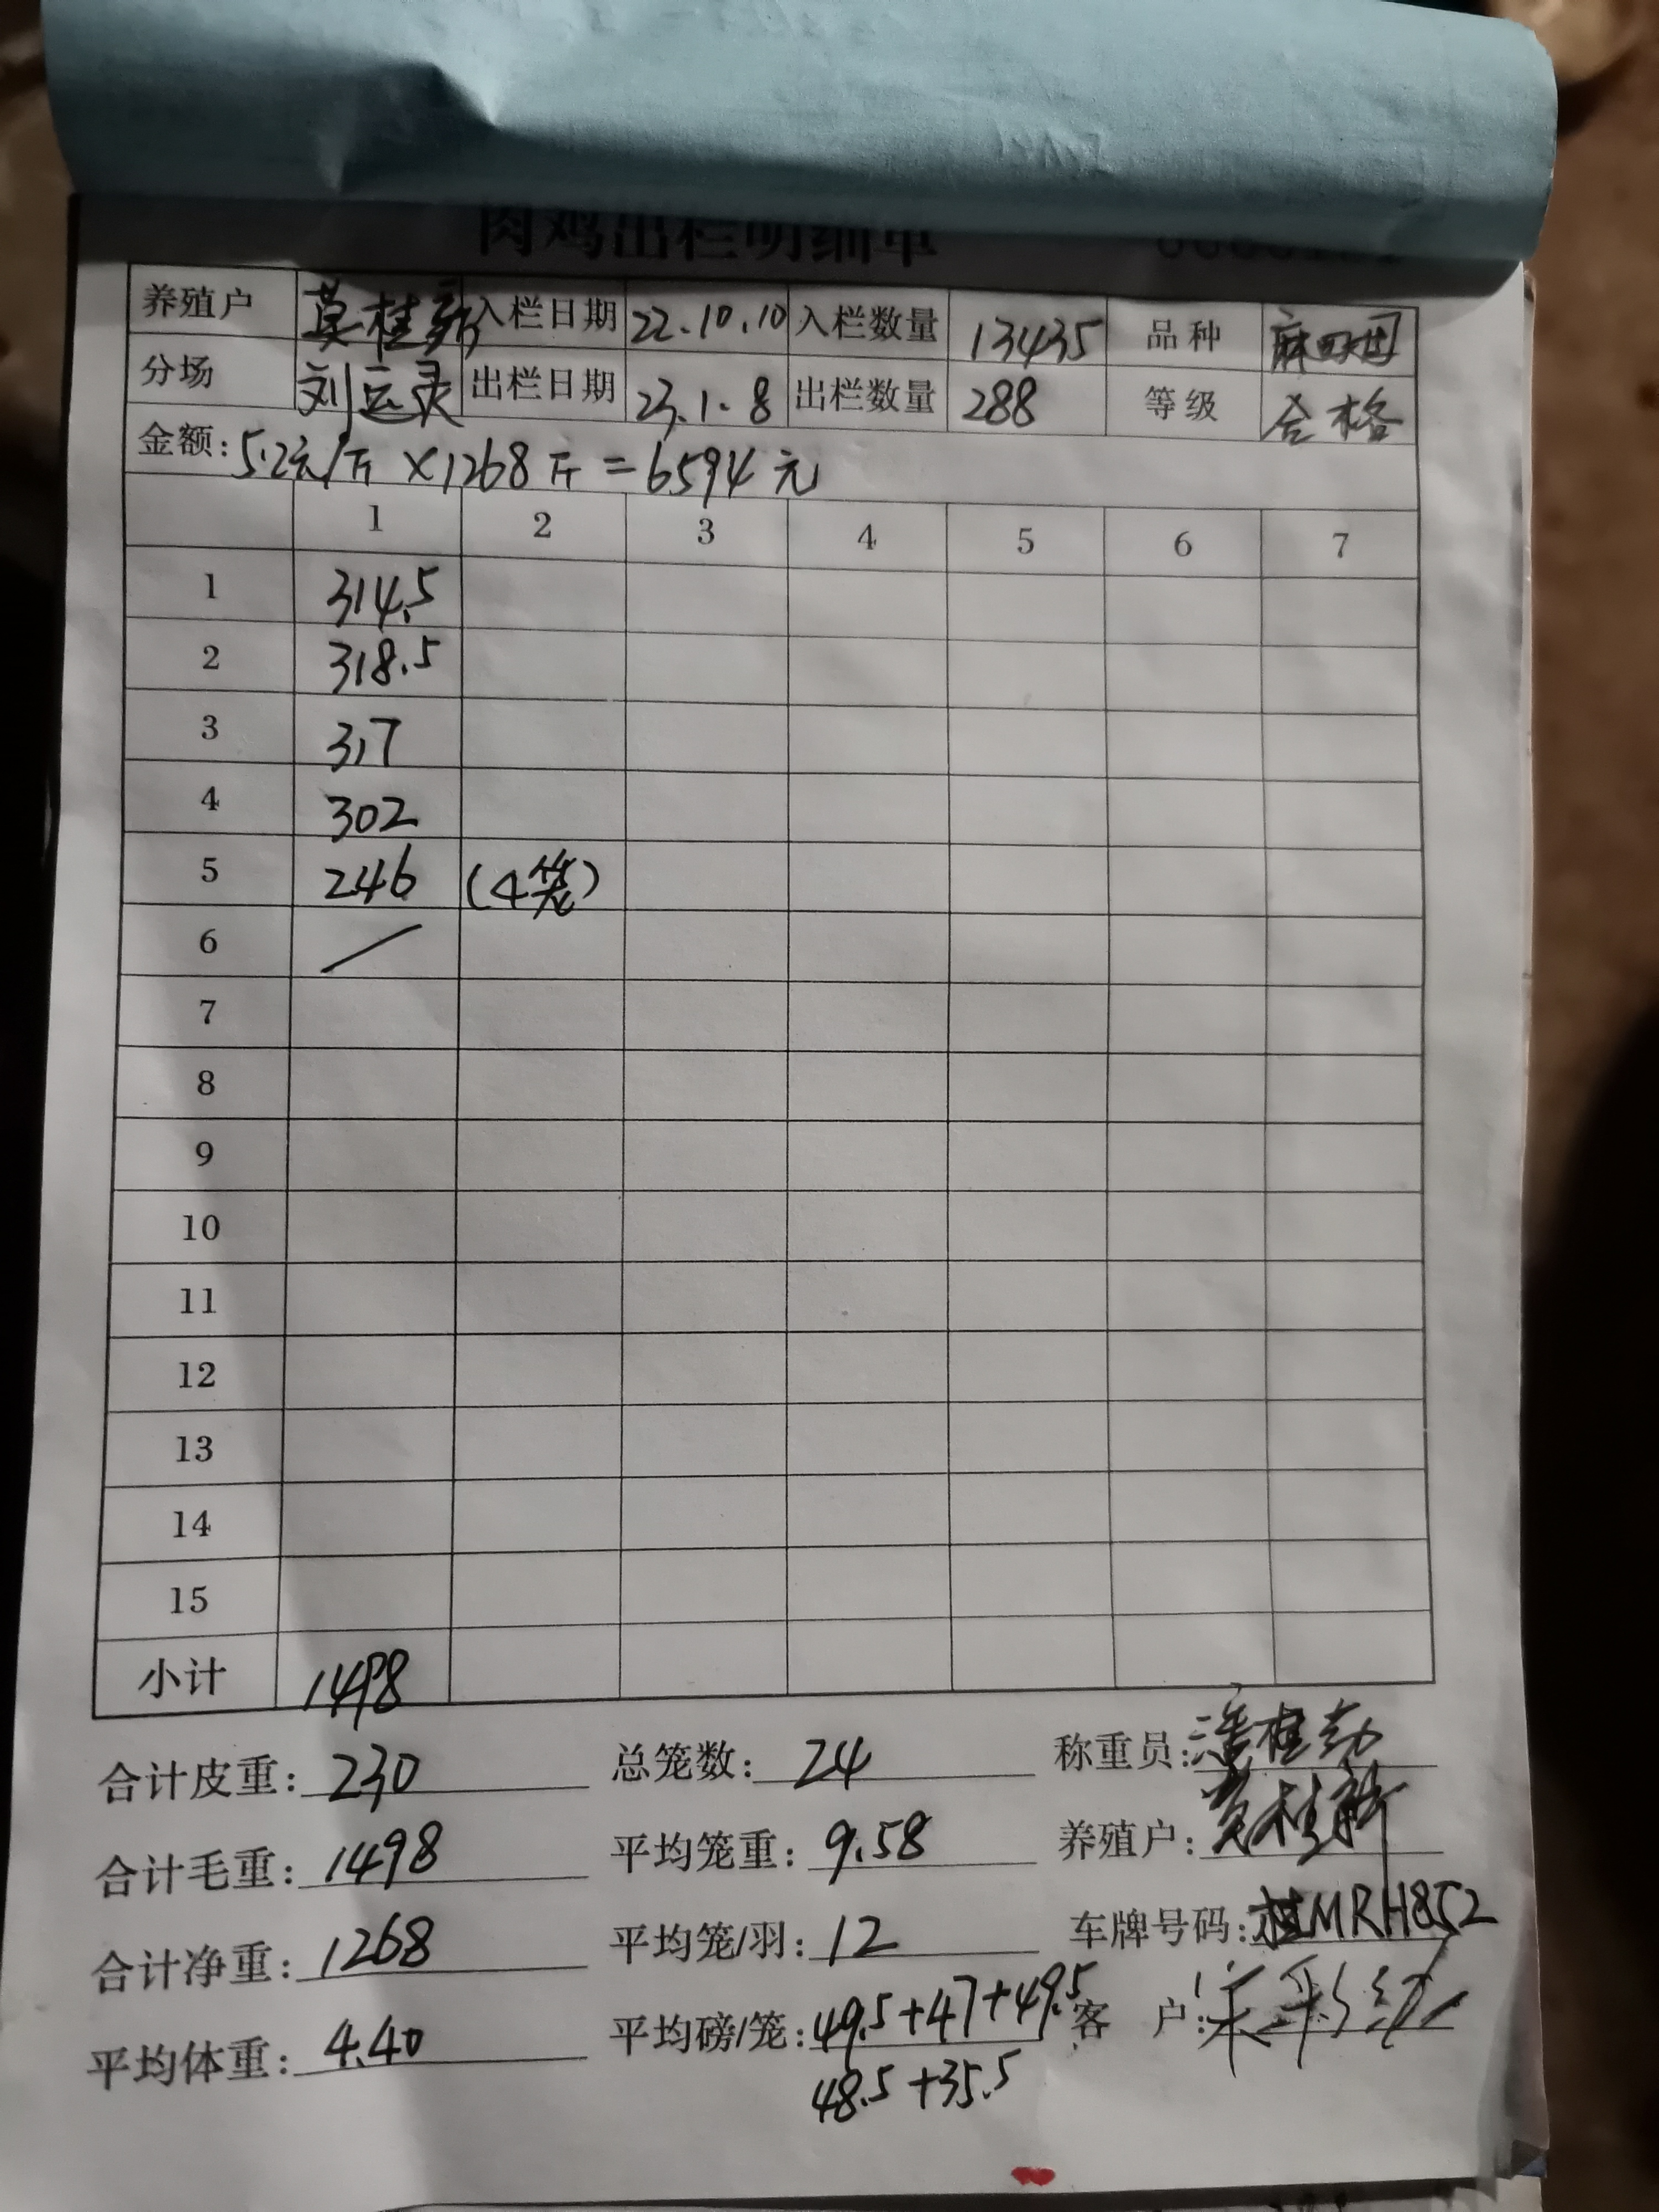 肉鸡出栏明细单
养殖户 莫桂新 入栏日期 22.10.10 入栏数量 13435 品种
分场 刘运录 出栏日期 23.1.8 出栏数量 288 等级 合格
金额: 5.2元/斤 ×1268斤 = 6594元
1 2 3 4 5 6 7
1 314.5
2 318.5
3 317
4 302
5 246 (4笼)
6 /
7
8
9
10
11
12
13
14
15
小计 1498
合计皮重: 230 总笼数: 24 称重员:
合计毛重: 1498 平均笼重: 9.58 养殖户: 莫桂新
合计净重: 1268 平均笼/羽: 12 车牌号码: 桂MRH852
平均体重: 4.40 平均磅/笼: 49.5+47+49.5 客 户:
48.5+35.5